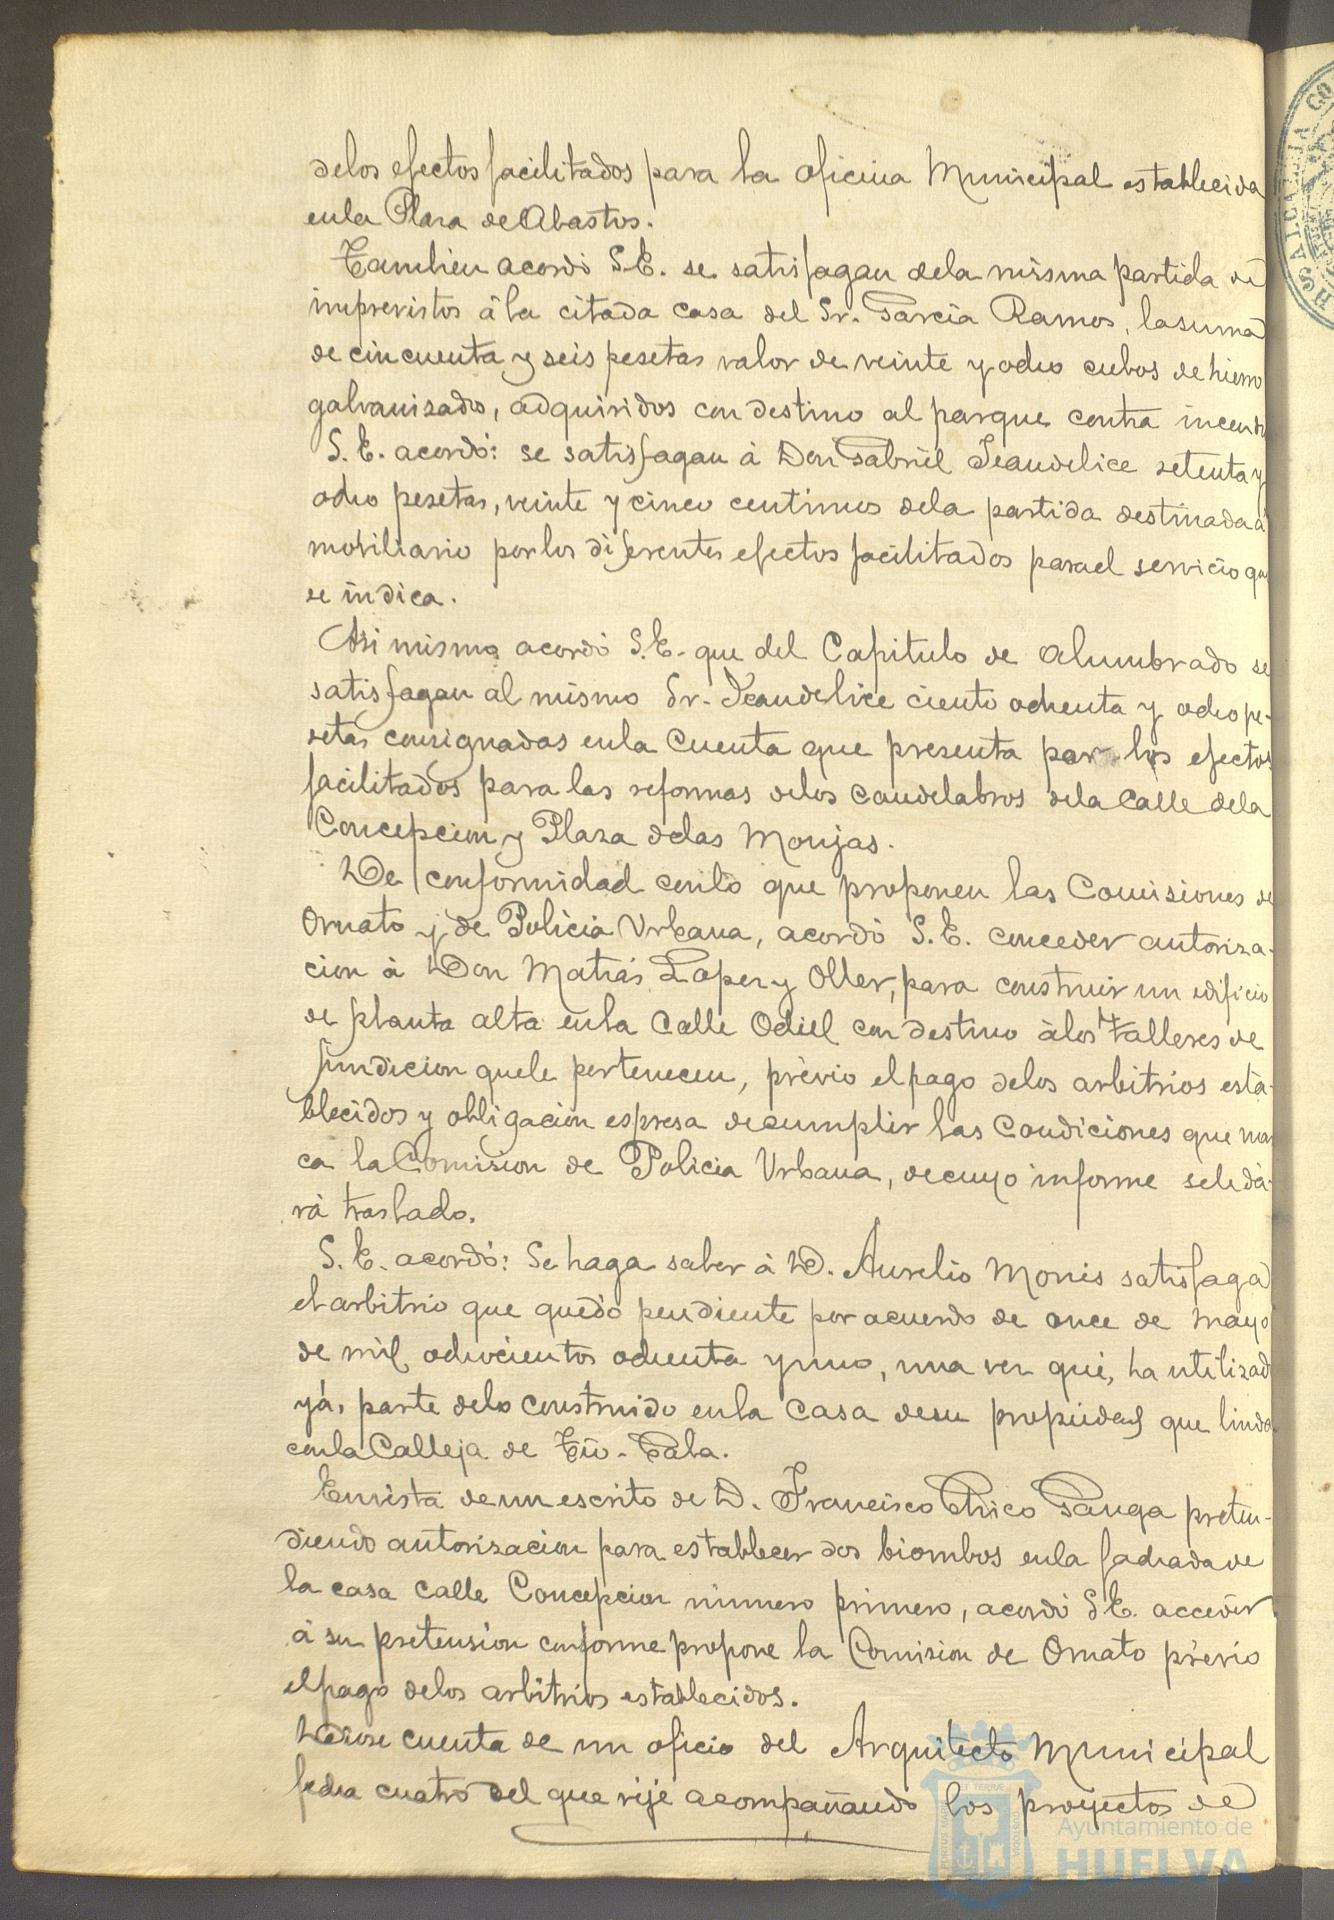 delos efectos facilitados para la oficina Municipal establecida
enla Plaza de Abastos.
Tambien acordó S.E. se satisfagan dela misma partida de
imprevistos á la citada casa del Sr. Garcia Ramos, la suma
de cincuenta y seis pesetas valor de veinte y ocho cubos de hierro
galvanizados, adquiridos con destino al parque contra incendi
S. E. acordó: se satisfagan á Don Gabriel Jeandelice setenta y
ocho pesetas, veinte y cinco centimos dela partida destinada á
mobiliario por los diferentes efectos facilitados parael servicio que
se indica.
Asi mismo acordó S.E. que del Capitulo de alumbrado se
satisfagan al mismo Sr. Jeandelice ciento ochenta y ocho pe-
setas consignadas enla cuenta que presenta por los efectos
facilitados para las reformas delos candelabros dela Calle dela
Concepcion y Plaza delas Monjas.
De conformidad conlo que proponen las Comisiones de
Ornato y de Policia Urbana, acordó S.E. conceder autoriza-
cion á Don Matias Lopez y Oller, para construir un edificio
de planta alta enla Calle Odiel con destino álos talleres de
fundicion quele pertenecen, prévio el pago delos arbitrios esta-
blecidos y obligacion espresa decumplir las Condiciones que mar
ca la Comision de Policia Urbana, decuyo informe sele da-
rá traslado.
S. E. acordó: Se haga saber á D. Aurelio Monis satisfaga
el arbitrio que quedó pendiente por acuerdo de once de Mayo
de mil ochocientos ochenta y uno, una vez que, ha utilizado
yá, parte delo construido enla Casa desu propiedad que linda
conla Calleja de Tio-Pala.
Envista de un escrito de D. Francisco Chico Ganga preten-
diendo autorizacion para establecer dos biombos enla fachada de
la casa calle Concepcion número primero, acordó S.E. acceder
á su pretension conforme propone la Comision de Ornato prévio
el pago delos arbitrios establecidos.
Diose cuenta de un oficio del Arquitecto Municipal
fecha cuatro del que rije acompañando los proyectos de
Ayuntamiento de
HUELVA